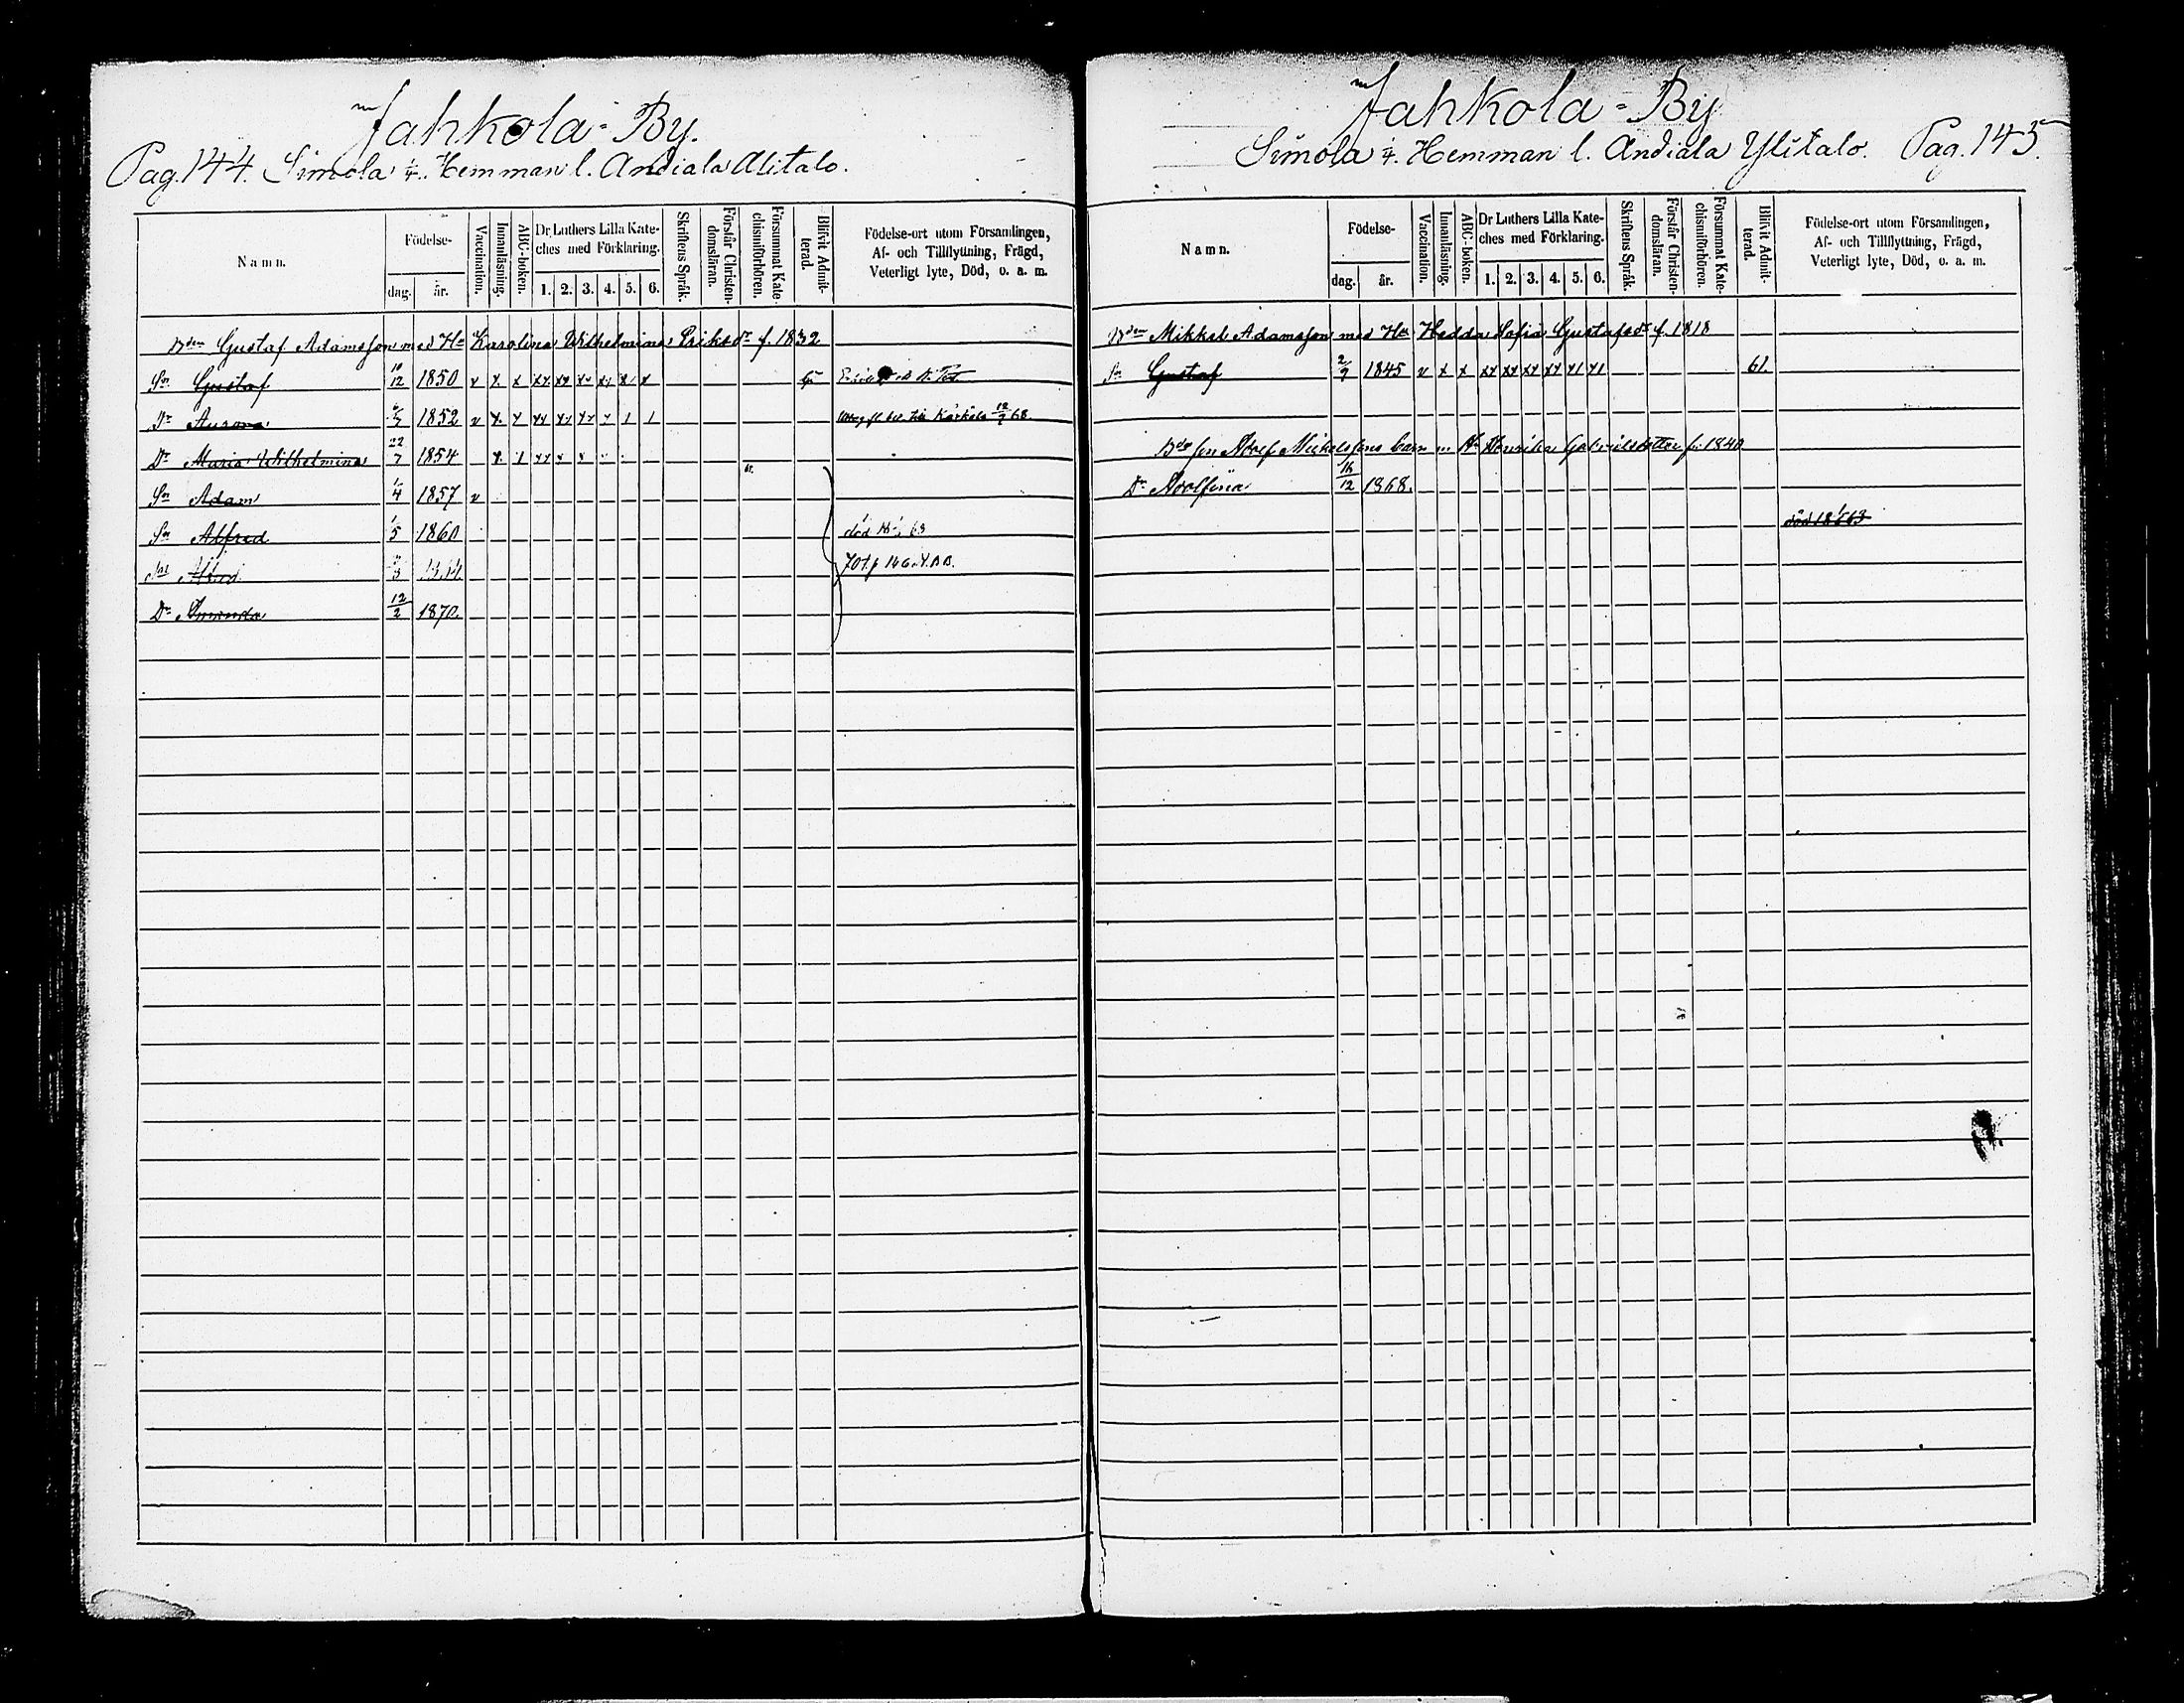 Jahkola-By.
Pag. 144. Simola ¼ Hemman l. Andiala Alitalo.
Namn.
Födelse-
dag.
år.
Vaccination.
Innanläsning.
ABC-boken.
Dr Luthers Lilla Kate-
ches med Förklaring.
1. 2. 3. 4. 5. 6.
Skriftens Språk.
Förstår Christen-
domsläran.
Försummat Kate-
chismiförhören.
Blifvit Admit-
terad.
Födelse-ort utom Församlingen,
Af- och Tillflyttning, Frägd,
Veterligt lyte, Död, o. a. m.
Bden Gustaf Adamsson med Hu Karolina Wilhelmina Eriksdr f. 1832
Sn Gustaf 10/12 1850 v x x xx xx xx xx x x
Dr Aurora 6/5 1852 v x x xx xx xx x 1 1 Kärkölä 12/9 68.
Dr Maria Wilhelmina 22/7 1854 x 1 xx x x
Sn Adam 1/4 1857 v
Sn Alfred 1/5 1860 död 63
Dr Amanda 12/2 1870.
Jahkola-By
Simola ¼ Hemman l. Andiala Ylitalo. Pag. 145.
Namn.
Födelse-
dag.
år.
Vaccination.
Innanläsning.
ABC-boken.
Dr Luthers Lilla Kate-
ches med Förklaring.
1. 2. 3. 4. 5. 6.
Skriftens Språk.
Förstår Christen-
domsläran.
Försummat Kate-
chismiförhören.
Blifvit Admit-
terad.
Födelse-ort utom Församlingen,
Af- och Tillflyttning, Frägd,
Veterligt lyte, Död, o. a. m.
Bden Mikkel Adamsson med Hu Hedda Sofia Gustafsdr f. 1818
Sn Gustaf 2/9 1845 v x x xx xx xx xx x1 x1 61.
Adolf Mickelssons barn m. Hu Henrika Gabrielsdotter f. 1840
Dr Adolfina 16/12 1868.
död